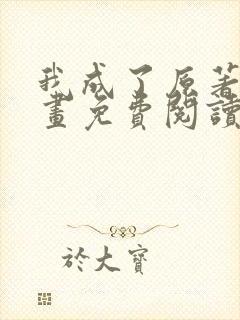 我成了原著
畫免費閱讀
於大寶